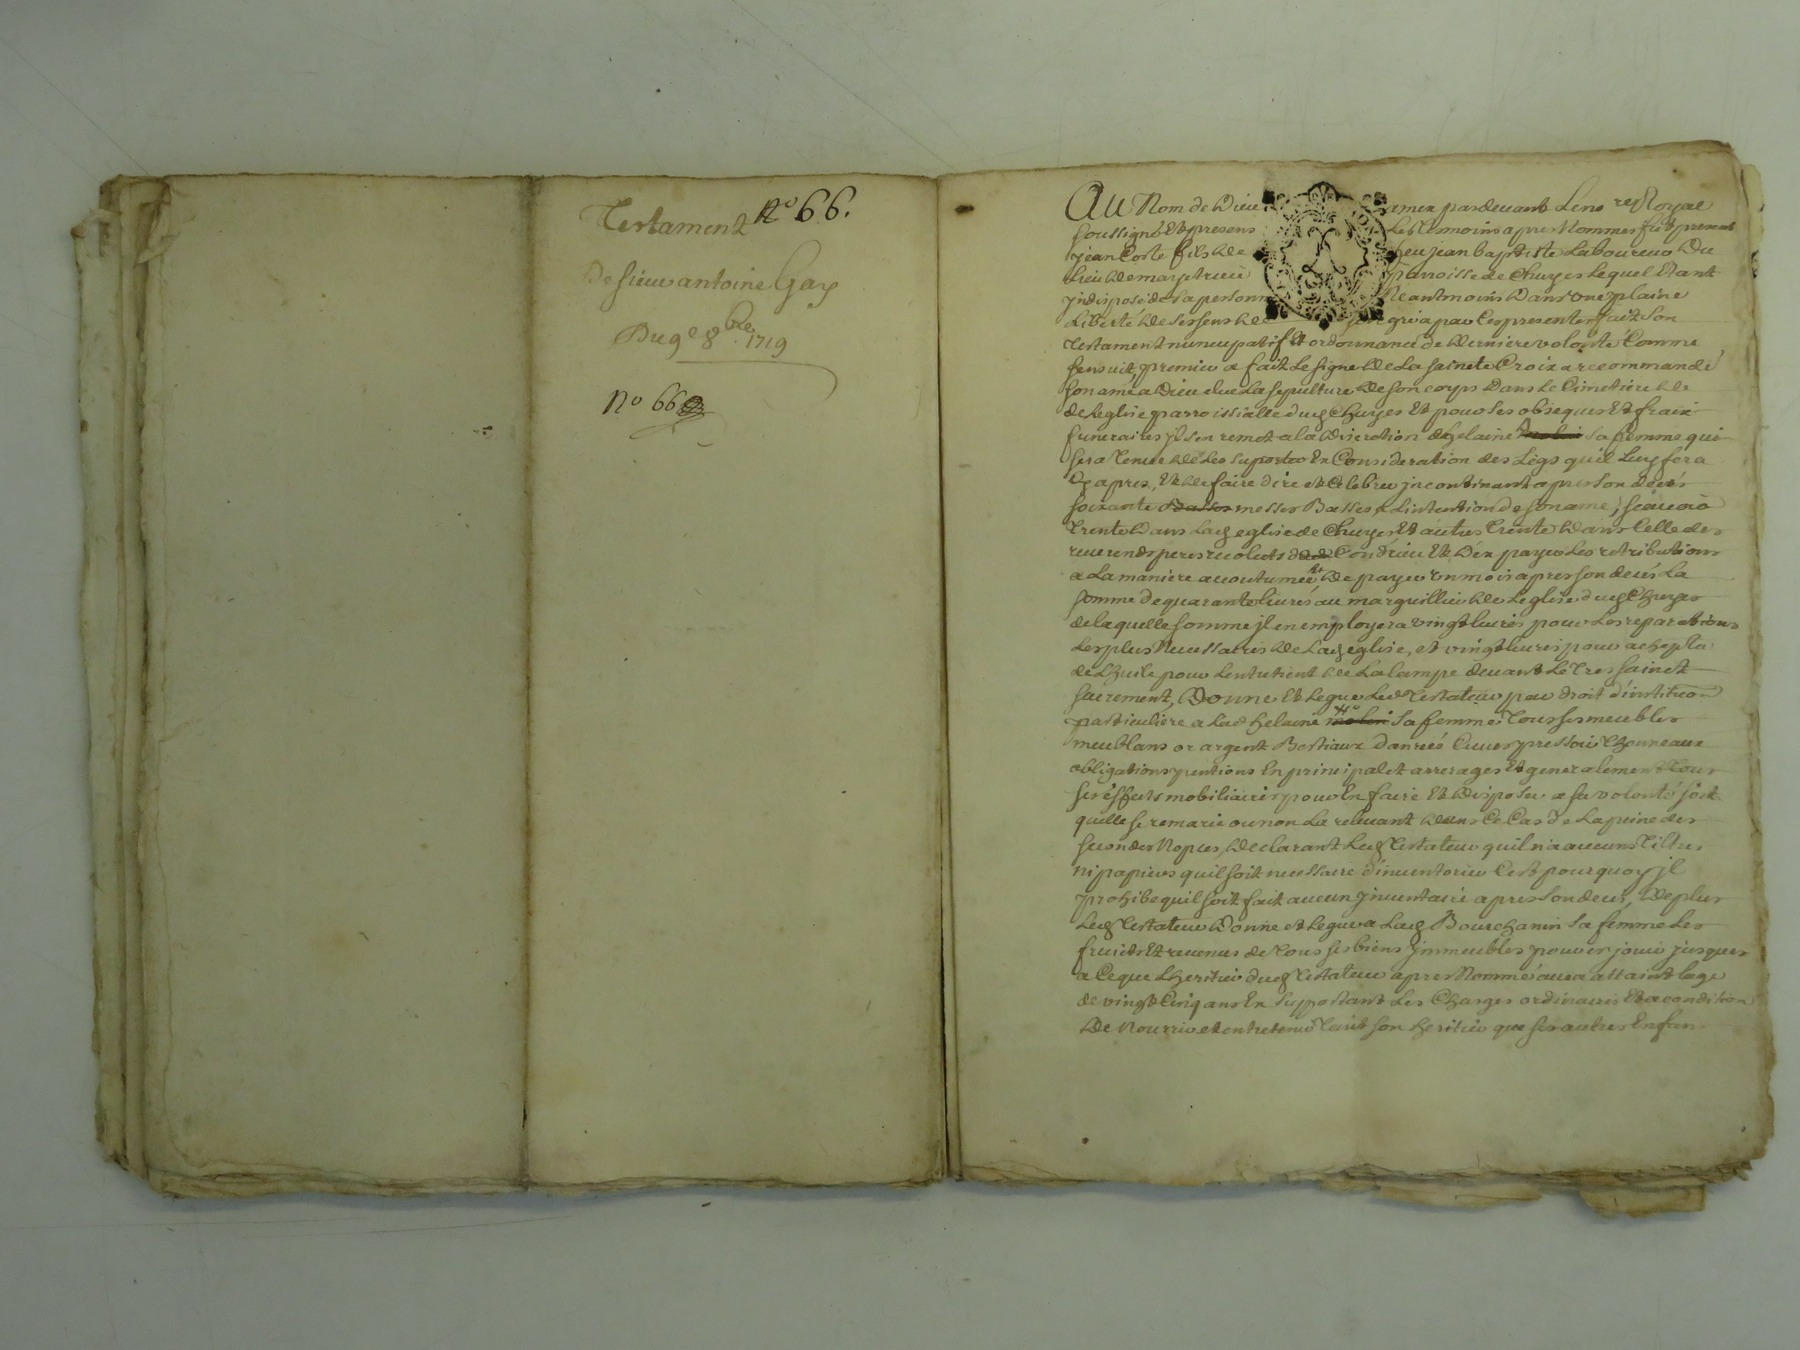 Testament N.o 66.
De sieur antoine Gay
Du 9e 8bre 1719
No 66
Au Nom de Dieu amen pardevant Le nore Royal
soussigné Et presens Les Temoins apres Nommes fut present
jean Coste fils de feu jean baptiste Laboureur Du
Lieu de paroisse de Chuyes Lequel Etant
jndisposé de sa personne Neantmoins Dans une plaine
Liberté de ses sens de gré a par Ces presentes fait Son
Testament nuncupatif Et ordonnance de derniere volonté Comme
sensuit, premier a fait Le signe de La sainte Croix a recommandé
son ame a Dieu elue La sepulture de son corps Dans Le Cimetiere de
de Leglise parroissialle dud Chuyes Et pour ses obseques Et fraix
funeraires jl sen remet a la Discretion d'helaine sa femme qui
sera Tenue de Les suporter En Consideration des Legs quil Luy fera
Cy apres, Et de faire dire et Celebrer jncontinant apres son decés
soixante messes Basses a Lintention de son ame, scavoir
Trente Dans Lad eglise de Chuyes Et autres Trente Dans Celle des
reverends peres recolets de Condrieu Et d'en payer Les retributions
a La maniere accoutumée Et De payer un mois apres son decés La
somme de quarante livres au marguillier de Leglise dud Chuyes
de laquelle somme jl en employera vingt livres pour Les reparations
Les plus Necessaires de Lad eglise, et vingt livres pour achepter
de Lhuile pour Lentretient de La lampe devant Le Tres sainct
sacrement, Donne Et Legue Led Testateur par droit d'institution
particuliere a Lad helaine sa femme Tous ses meubles
meublans or argent Bestiaux danrées Cuves pressoir Thonneaux
obligations pentions En principal et arrerages Et generalement Tous
ses effects mobiliaires pour En faire Et Disposer a sa volonté soit
quelle se remarie ou non La relevant dans Ce Cas de La peine des
secondes Nopces, declarant Led Testateur quil n'a aucuns Tiltres
ni papiers quil soit necessaire d'inventorier Cest pourquoy jl
prohibe quil soit fait aucun jnventaire apres son deces, De plus
Led Testateur Donne et Legue a Lad Bourchanin sa femme Les
fruicts Et revenus de Tous ses biens jmmeubles pour en jouir jusques
a Ce que Lheritier dud Testateur apres Nommé aura attaint Lage
de vingt Cinq ans En supportant Les Charges ordinaires Et a condition
De Nourrir et entretenir Tant son heritier que ses autres Enfans